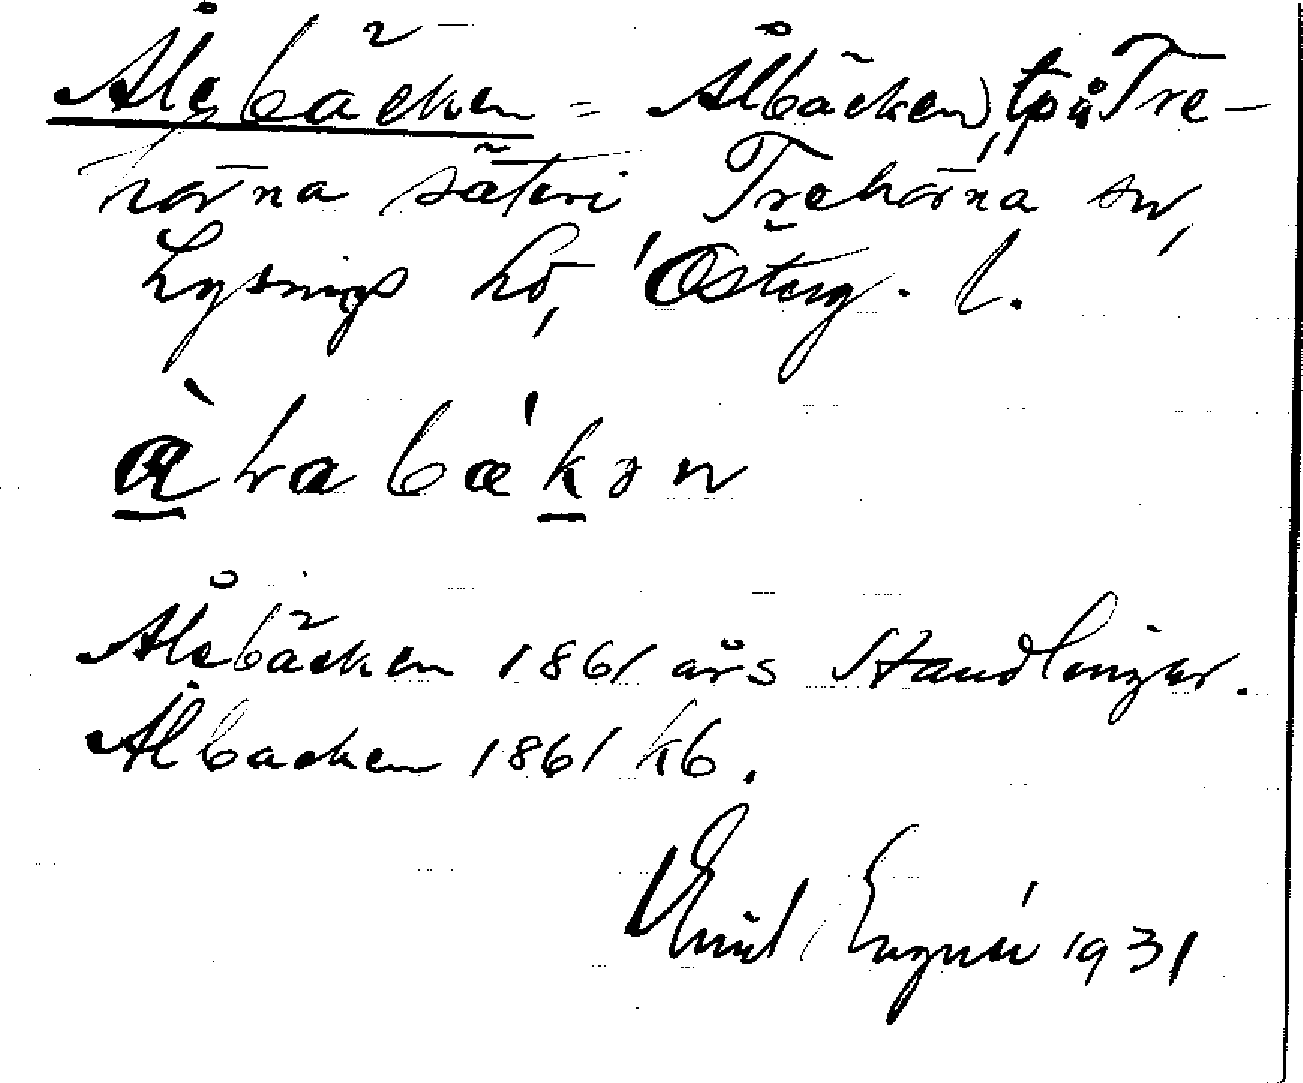 Ålsbäcken = Ålbäcken, tp å Tre-
hörna säteri Trehörna sn,
Lysings hd, Österg. l.
Ålsbäcken 1861 års Handlingar.
Ålbacken 1861 kb.
Emil Engnér 1931